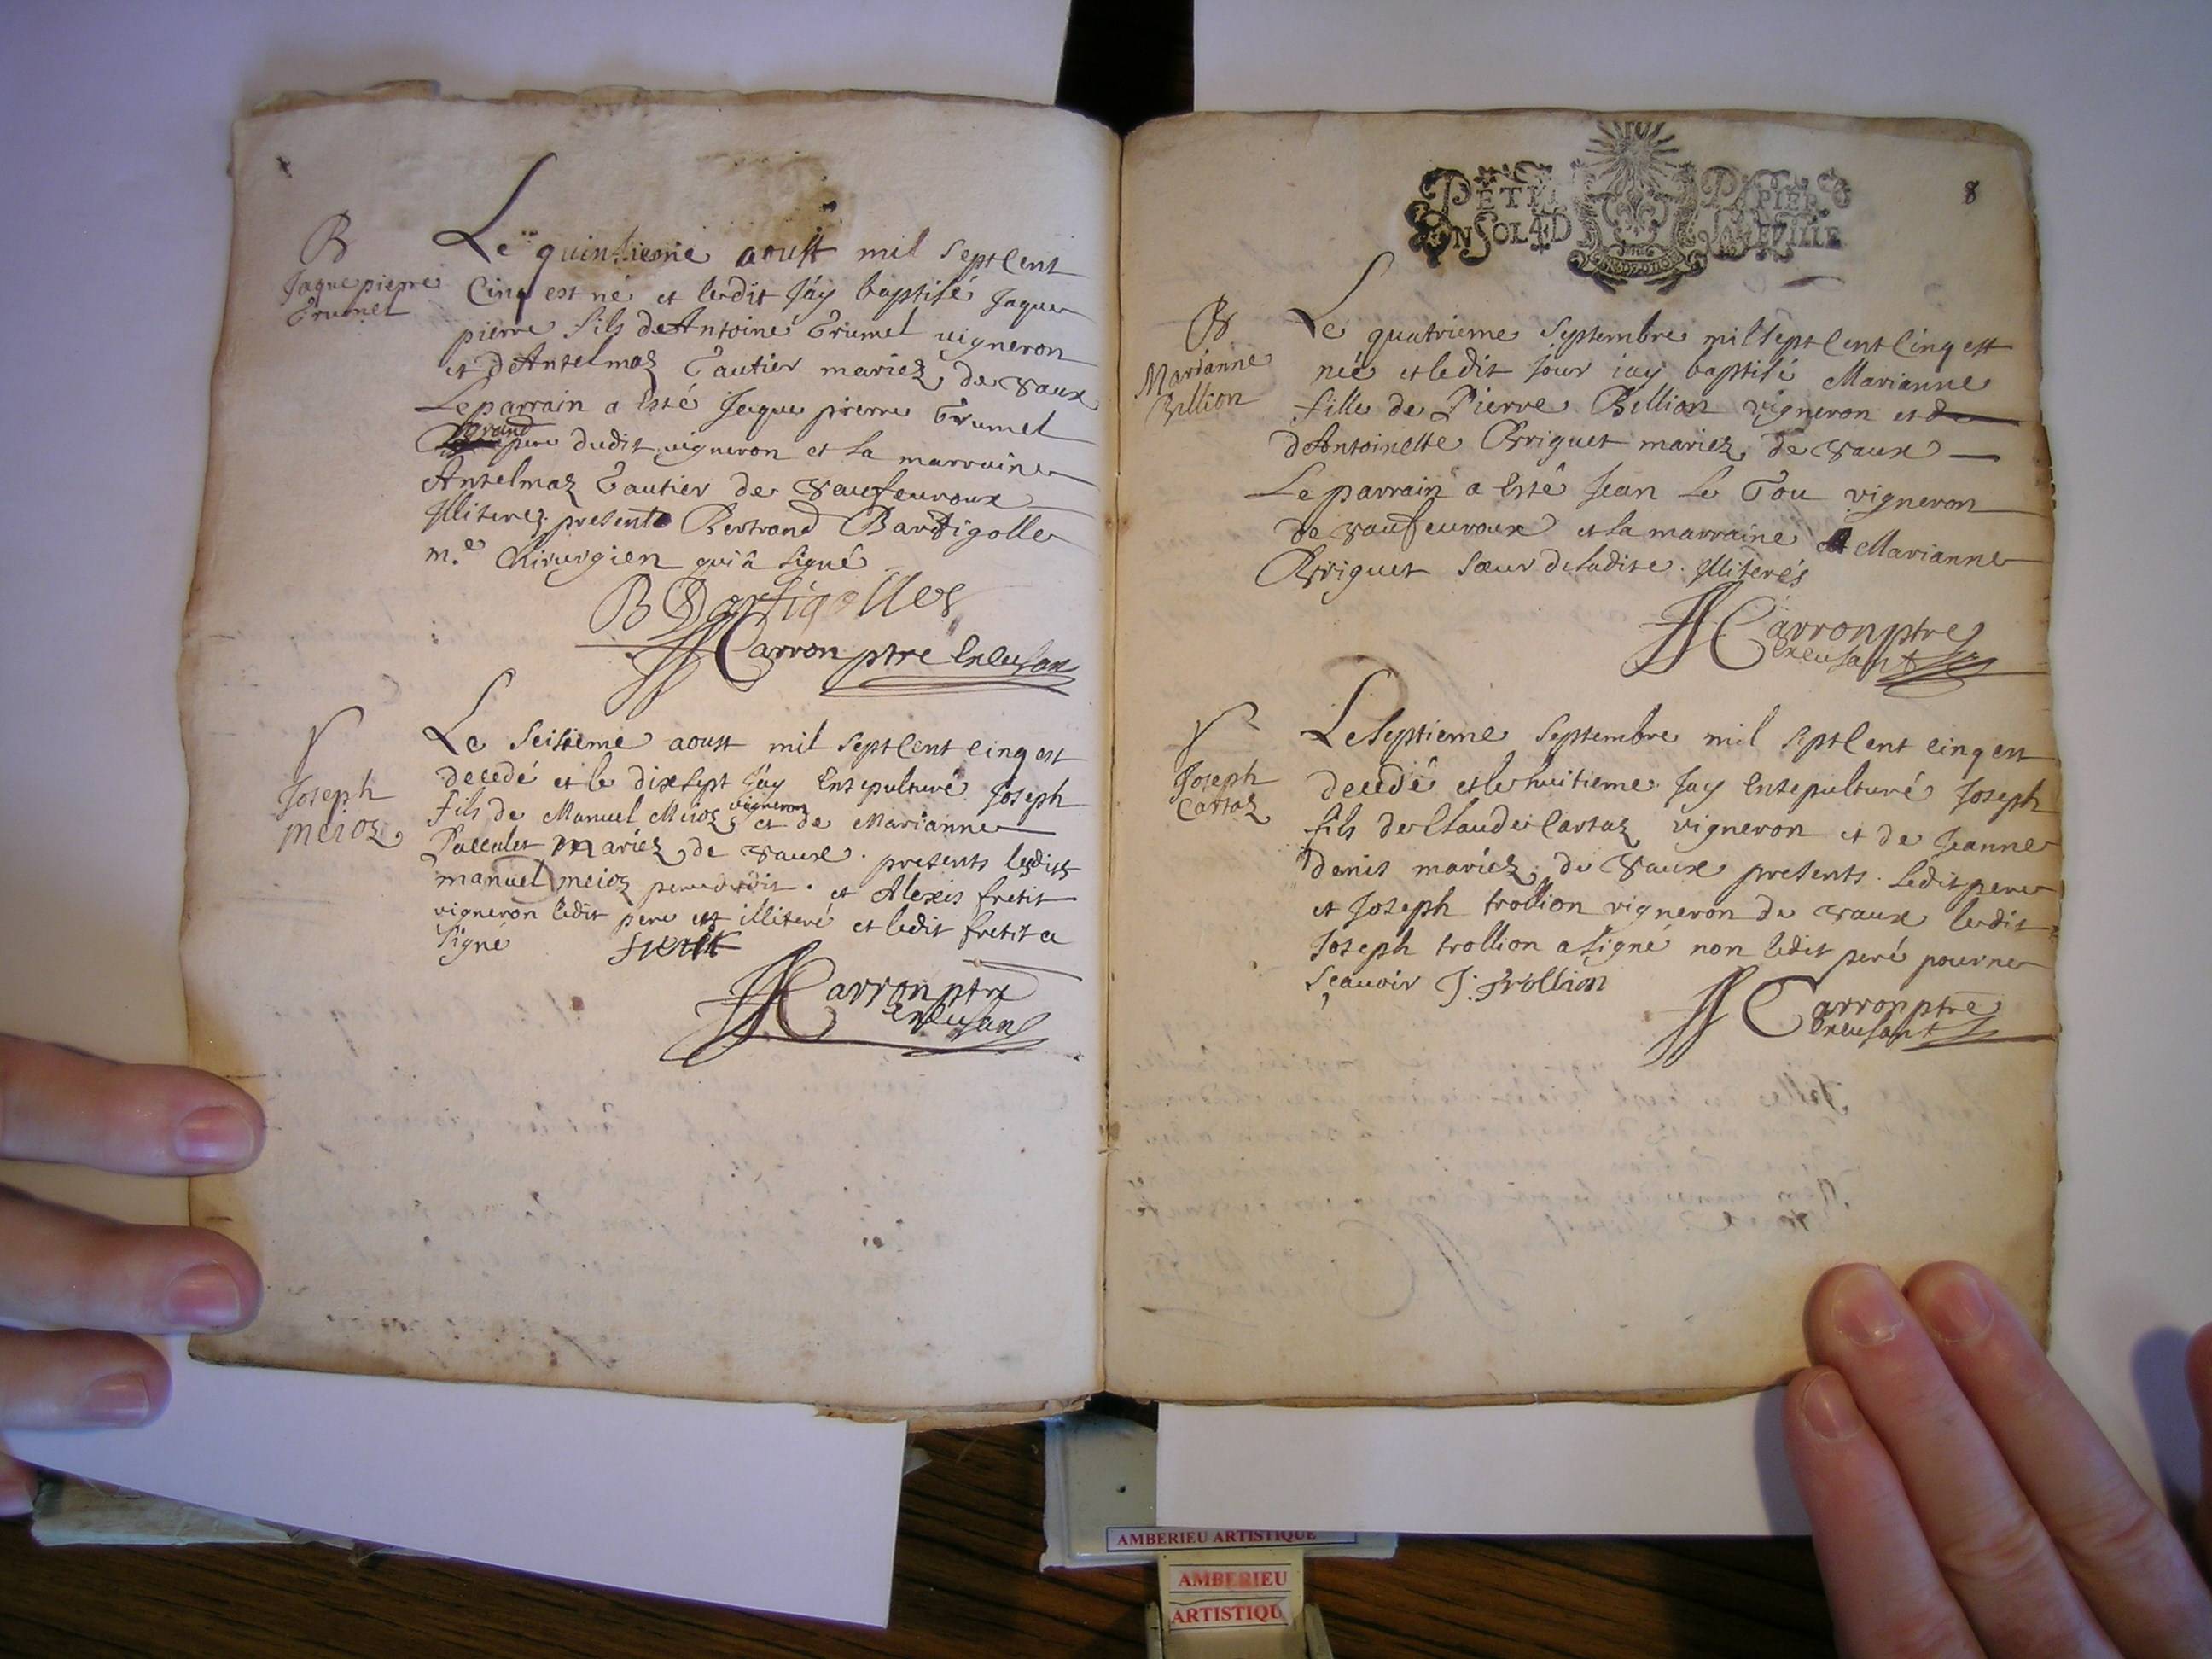 B
Jaque pierre
Trumel
Le quinzieme aoust mil sept cent
Cinq est né et ledit jáy baptisé Jaque
pierre fils de Antoine Trumel vigneron
et dAntelmaz Gautier mariez de Vaux
Le parrain a esté Jaque pierre Trumel
grand
pere dudit vigneron et la marraine
Antelmaz Gautier de Vaufeuroux
Illiterez present Bertrand Bartigolle
m.e Chirurgien qui â signé
B Dartigolles
Carron ptre
S
Joseph
meioz
Le seisieme aoust mil sept cent cinq est
decedé et le dixsept jáy ensepulturé Joseph
vigneron
fils de Manuel Meioz et de Marianne
Paccalet mariez de Vaux. presents lesdits
manuel meioz pere dudit. et Alexis fretit
vigneron ledit pere est illiteré et ledit fretit a
signé fretit
Carron ptre
8
PETIT PAPIER
UN SOL 4 D LA FEUILLE
B
Marianne
Billion
Le quatrieme Septembre mil sept cent cinq est
née et ledit jour iay baptisé Marianne
fille de Pierre Billion vigneron et de
dAntoinette Brriguet mariez de Vaux
Le parrain a esté Jean Le Gou vigneron
de Vaufeuroux et la marraine Marianne
Brriguet sœur de ladite. Illiterés
Carron ptre
S
Joseph
Cartaz
Le septieme Septembre mil sept cent cinq est
decedé et le huitieme jay ensepulturé Joseph
fils de Claude Cartaz vigneron et de Jeanne
denis mariez de Vaux presents. ledit pere
et Joseph trollion vigneron de Vaux ledit
Joseph trollion a signé non ledit peré pour ne
sçauoir J: trollion
Carron ptre
AMBERIEU ARTISTIQUE
AMBERIEU
ARTISTIQU